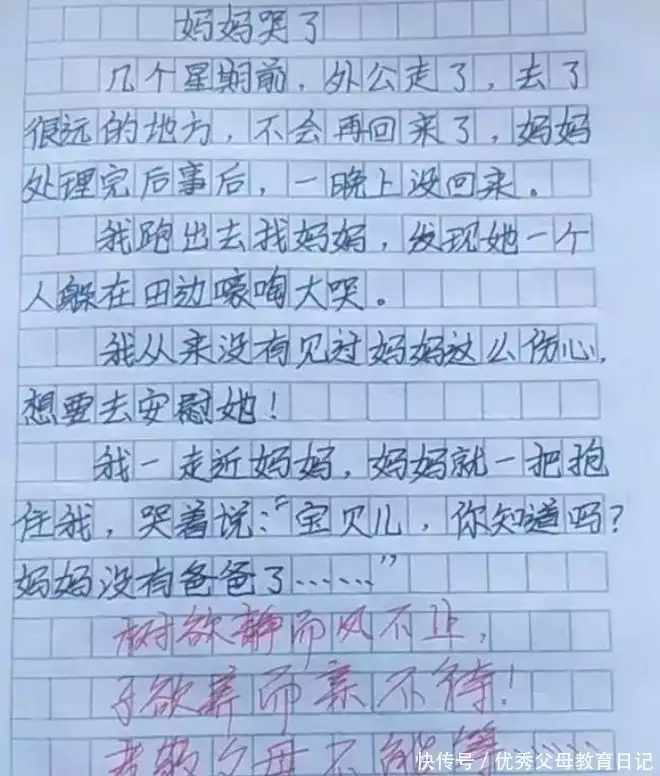 妈妈哭了
几个星期前，外公走了，去了
很远的地方，不会再回来了，妈妈
处理完后事后，一晚上没回来。
我跑出去找妈妈，发现她一个
人躲在田边嚎啕大哭。
我从来没有见过妈妈这么伤心，
想要去安慰她！
我一走近妈妈，妈妈就一把抱
住我，哭着说："宝贝儿，你知道吗？
妈妈没有爸爸了……"
树欲静而风不止，
子欲养而亲不待！
父母不能等
快传号/优秀父母教育日记